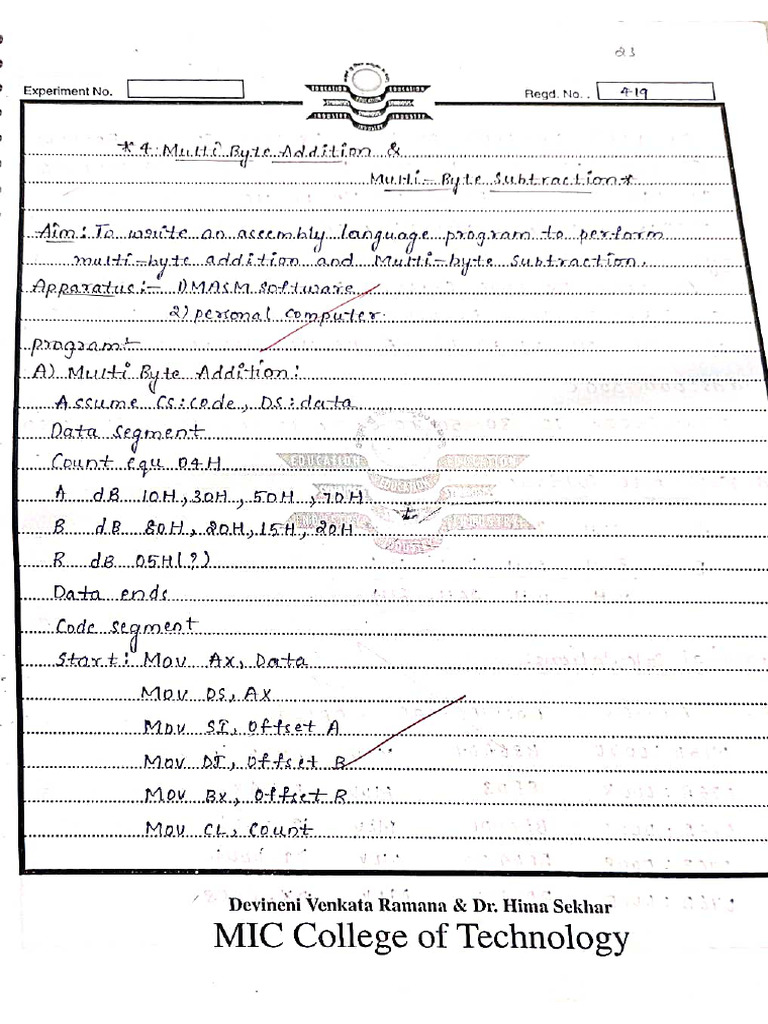 23
Experiment No.
Regd. No. . 419
*4. Multi Byte Addition &
Multi-Byte Subtraction*
Aim: To write an assembly language program to perform
multi-byte addition and Multi-byte Subtraction.
Apparatus:- 1) MASM Software
2) personal Computer.
program:-
A) Multi Byte Addition:
Assume Cs:code, DS:data
Data segment
Count equ 04H
A dB 10H, 30H, 50H, 70H
B dB 80H, 20H, 15H, 20H
R dB 05H(?)
Data ends
Code segment
Start: Mov Ax, Data
Mov DS, Ax
Mov SI, Offset A
Mov DI, Offset B
Mov Bx, Offset R
Mov CL, Count
EDUCATION EDUCATION
EDUCATION
Devineni Venkata Ramana & Dr. Hima Sekhar
MIC College of Technology